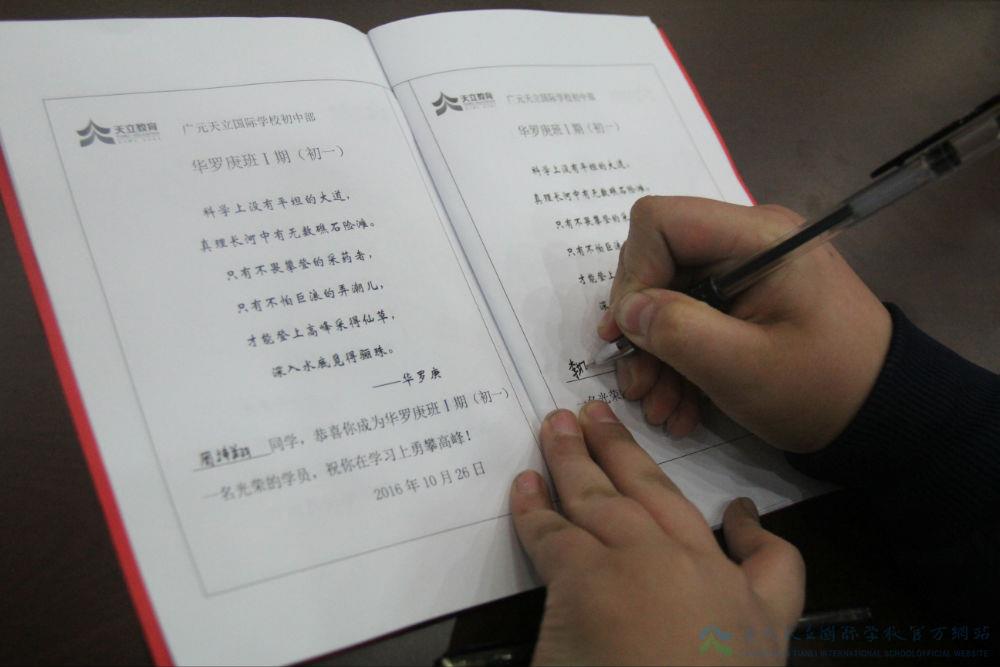 天立教育
广元天立国际学校初中部
华罗庚班 I 期（初一）
科学上没有平坦的大道，
真理长河中有无数礁石险滩。
只有不畏攀登的采药者，
只有不怕巨浪的弄潮儿，
才能登上高峰采得仙草，
深入水底觅得骊珠。
——华罗庚
同学，恭喜你成为华罗庚班 I 期（初一）
一名光荣的学员，祝你在学习上勇攀高峰！
2016 年 10 月 26 日
天立教育
广元天立国际学校初中部
华罗庚班 I 期（初一）
科学上没有平坦的大道，
真理长河中有无数礁石险滩。
只有不畏攀登的采
只有不怕巨浪
才能登上
深
一名光荣
天立国际学校官方网站
TIANLI INTERNATIONAL SCHOOL OFFICIAL WEBSITE